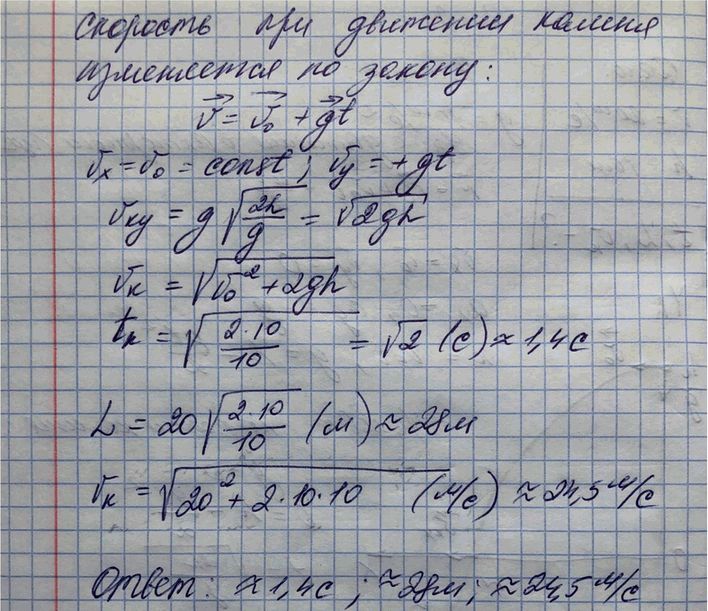 Скорость при движении камня
изменяется по закону:
v⃗ = v⃗₀ + g⃗t
vₓ = v₀ = const; v_y = +gt
v_кy = g√(2h/g) = √(2gh)
v_к = √(v₀² + 2gh)
t_к = √(2·10/10) = √2 (с) ≈ 1,4с
L = 20√(2·10/10) (м) ≈ 28м
v_к = √(20² + 2·10·10) (м/с) ≈ 24,5 м/с
Ответ: ≈ 1,4с; ≈ 28м; ≈ 24,5 м/с